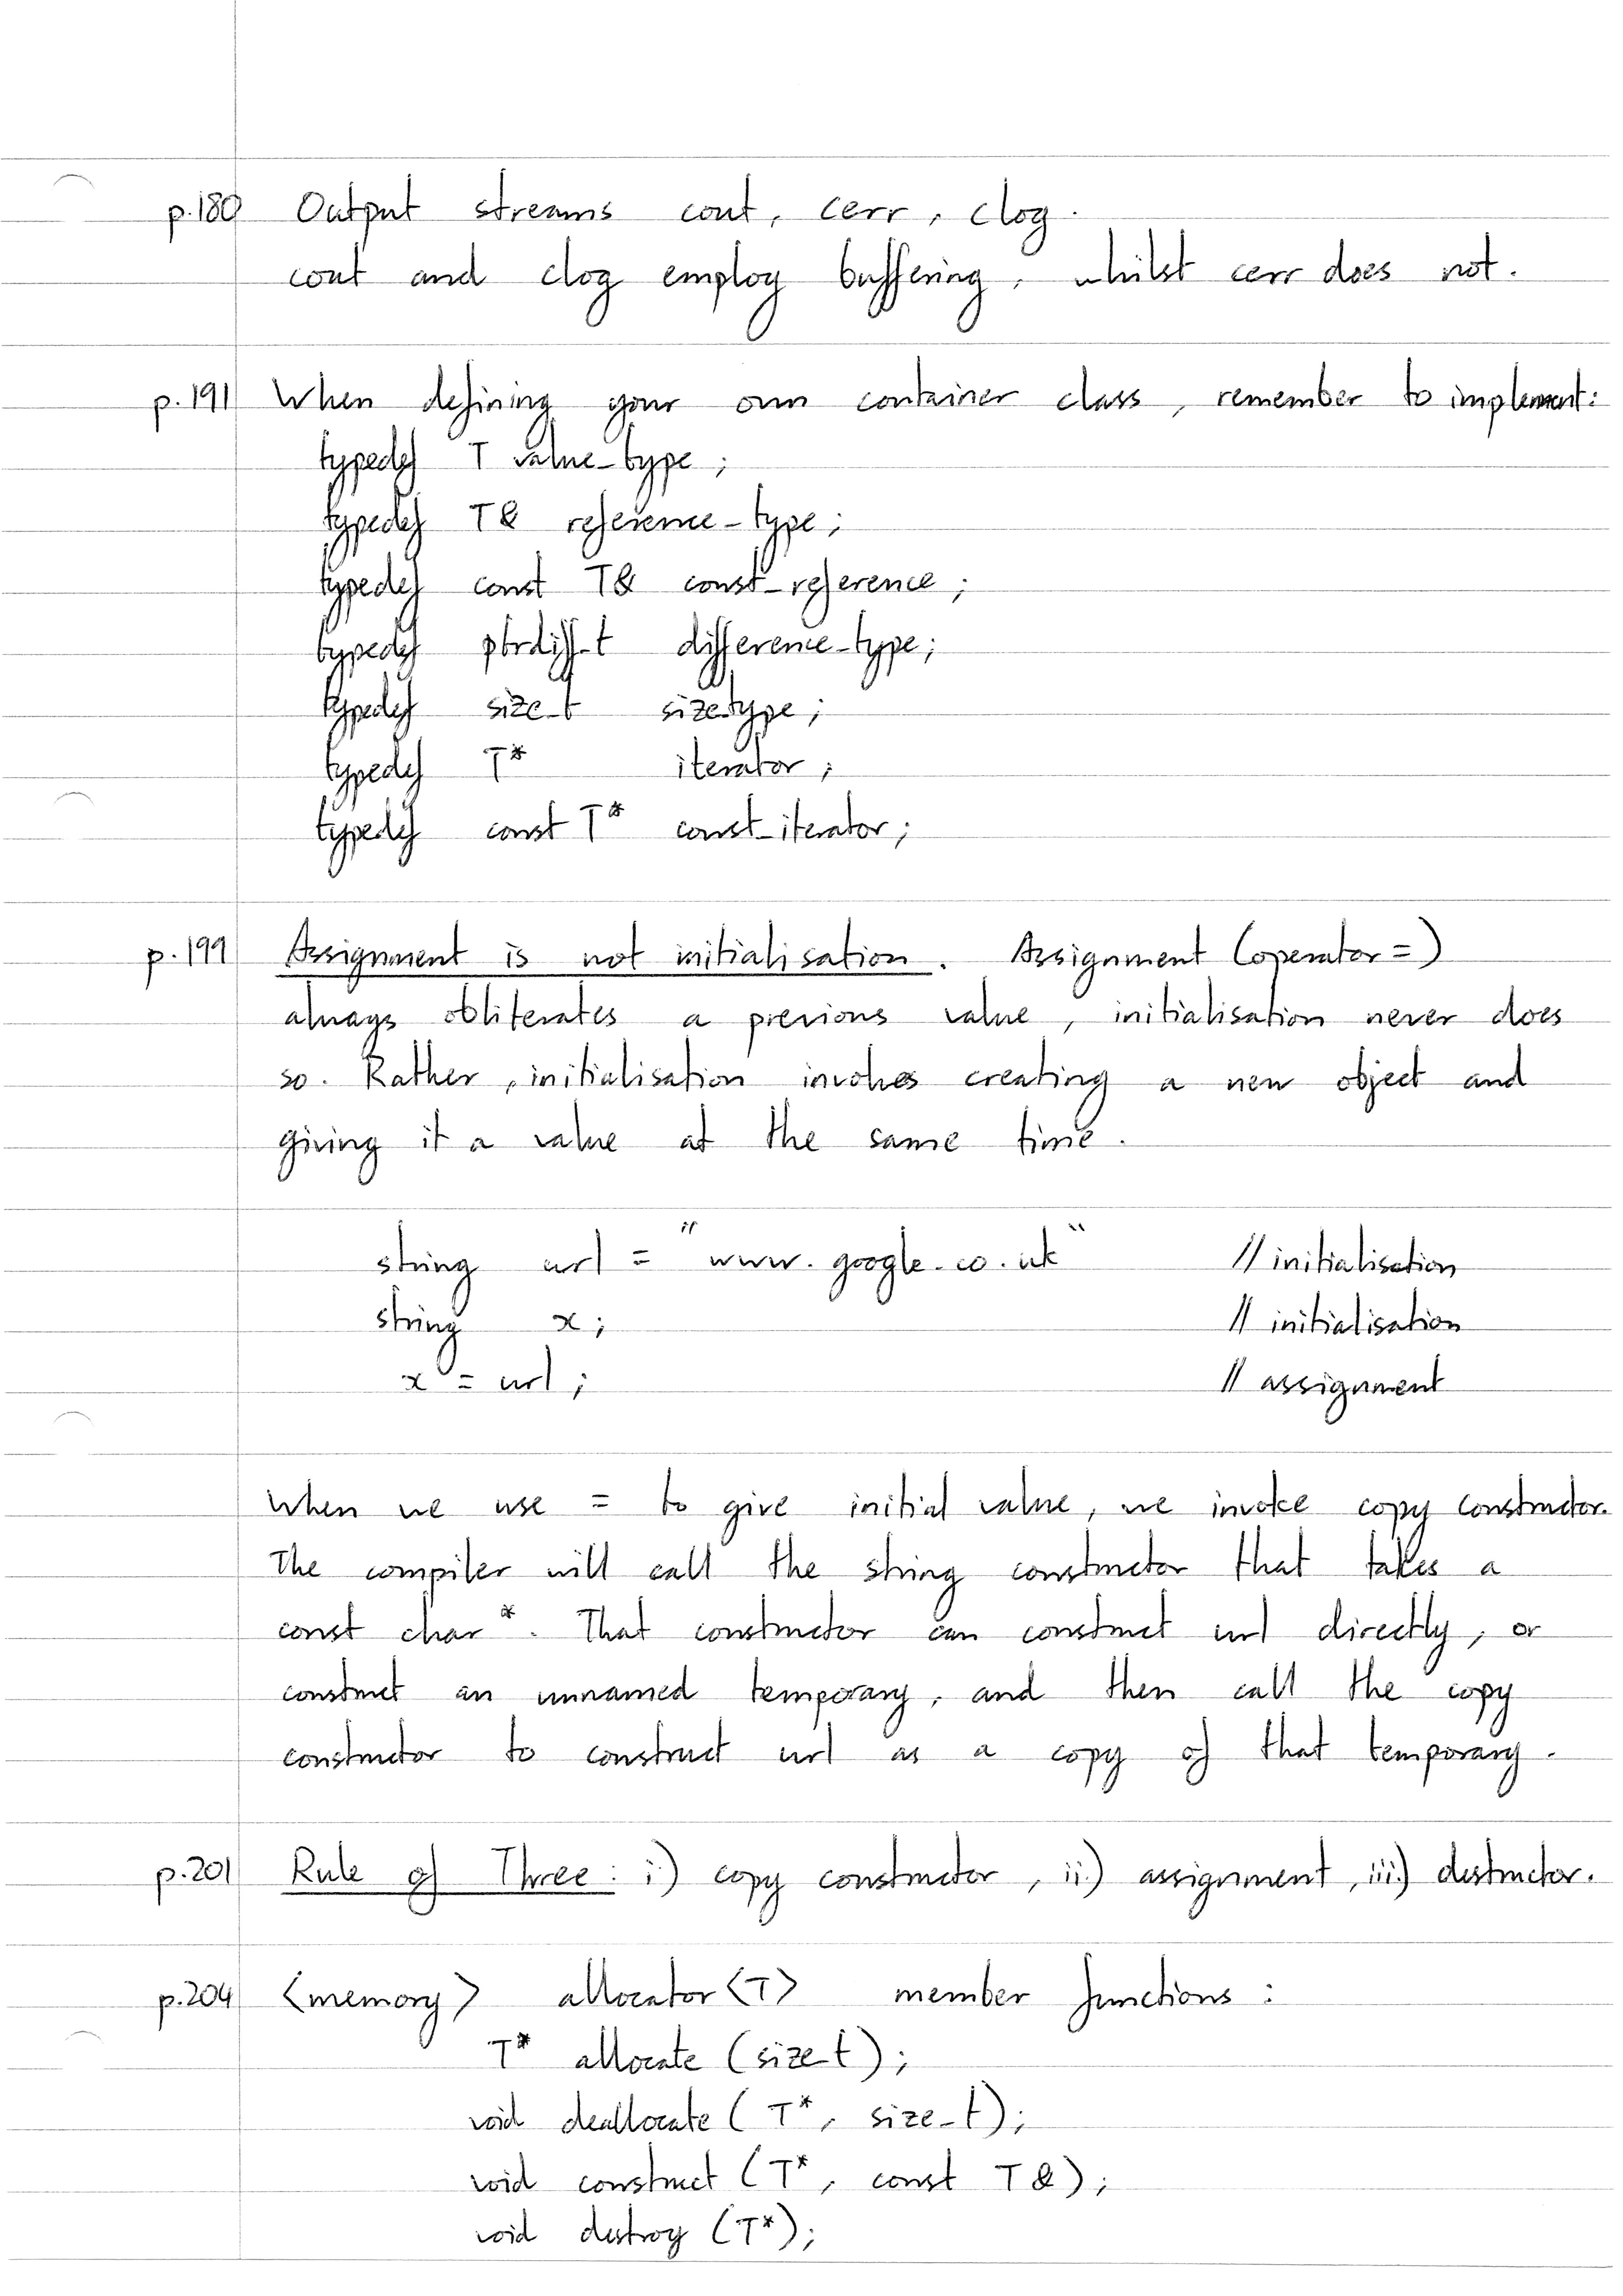 p.180 Output streams cout, cerr, clog.
cout and clog employ buffering, whilst cerr does not.
p.191 When defining your own container class, remember to implement:
typedef T value_type;
typedef T& reference_type;
typedef const T& const_reference;
typedef ptrdiff_t difference_type;
typedef size_t size_type;
typedef T* iterator;
typedef const T* const_iterator;
p.199 Assignment is not initialisation. Assignment (operator=)
always obliterates a previous value, initialisation never does
so. Rather, initialisation involves creating a new object and
giving it a value at the same time.
string url = "www.google.co.uk" // initialisation
string x; // initialisation
x = url; // assignment
When we use = to give initial value, we invoke copy constructor.
The compiler will call the string constructor that takes a
const char*. That constructor can construct url directly, or
construct an unnamed temporary, and then call the copy
constructor to construct url as a copy of that temporary.
p.201 Rule of Three: i) copy constructor, ii.) assignment, iii.) destructor.
p.204 <memory> allocator<T> member functions:
T* allocate (size_t);
void deallocate (T*, size_t);
void construct (T*, const T&);
void destroy (T*);